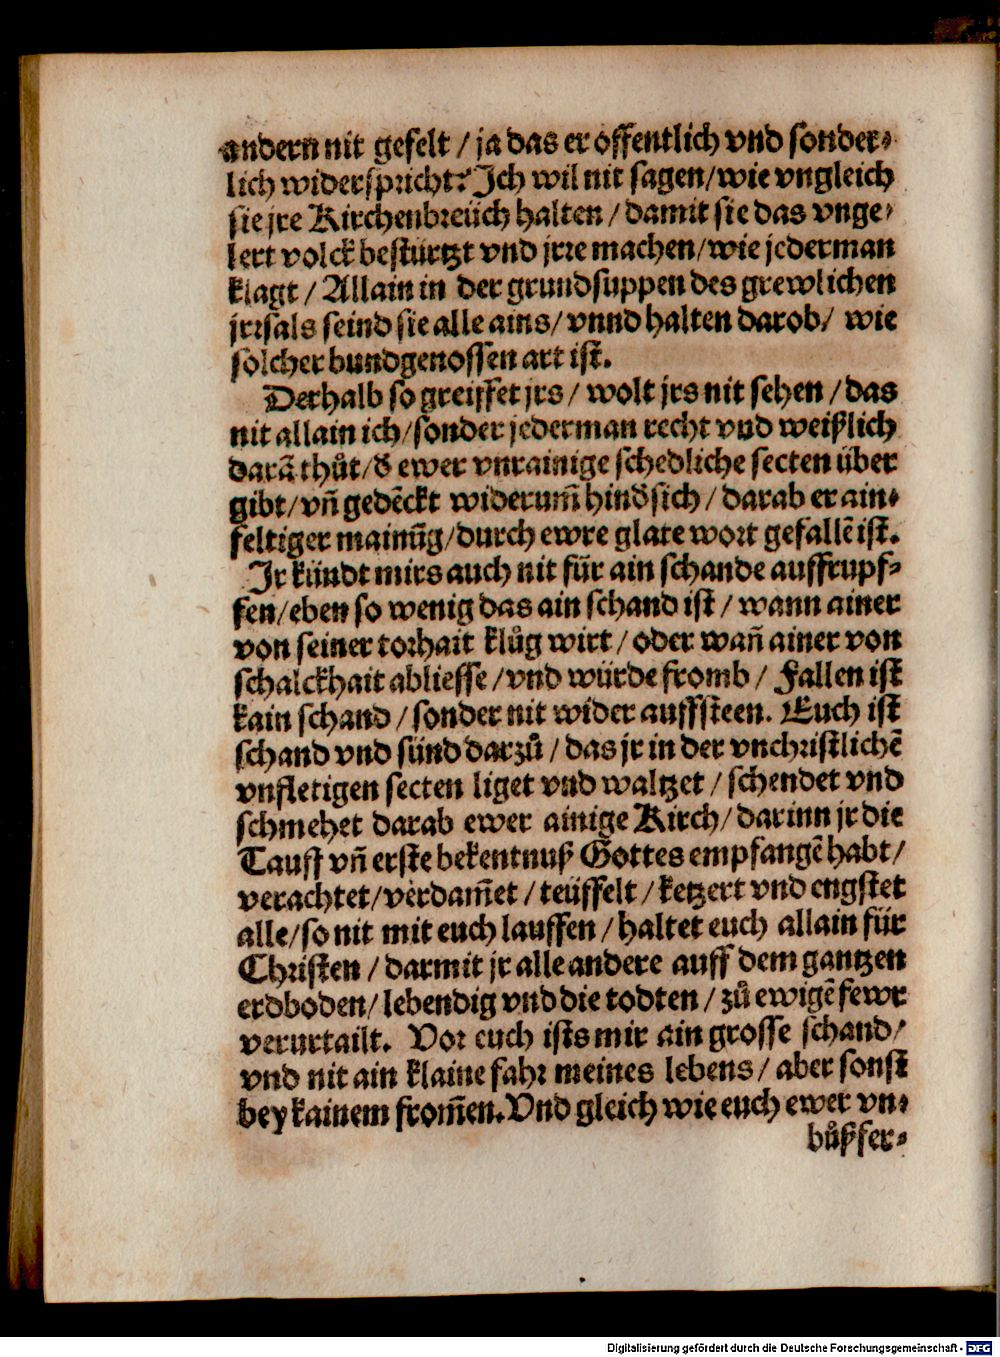 andern nit gefelt / ja das er offentlich vnd sonder⸗
lich widerspricht? Ich wil nit sagen/wie vngleich
sie jre Kirchenbreüch halten / damit sie das vnge⸗
lert volck bestürtzt vnd jrre machen/wie jederman
klagt / Allain in der grundsuppen des grewlichen
jrrsals seind sie alle ains/ vnnd halten darob/ wie
solcher bundgenossen art ist.
Derhalb so greiffet jrs / wolt jrs nit sehen / das
nit allain ich/sonder jederman recht vnd weißlich
darã thůt/ð ewer vnrainige schedliche secten über
gibt/vñ gedẽckt widerum̃ hindsich / darab er ain⸗
feltiger mainũg/durch ewre glate wort gefallẽ ist.
Ir kündt mirs auch nit für ain schande auffrupf⸗
fen/eben so wenig das ain schand ist / wann ainer
von seiner torhait klůg wirt / oder wañ ainer von
schalckhait abliesse /vnd würde fromb / Fallen ist
kain schand / sonder nit wider auffsteen. Euch ist
schand vnd sünd darzů / das jr in der vnchristlichẽ
vnfletigen secten liget vnd waltzet / schendet vnd
schmehet darab ewer ainige Kirch/ darinn jr die
Tauff vñ erste bekentnuß Gottes empfangẽ habt/
verachtet/verdam̃et / teüffelt / ketzert vnd engstet
alle/so nit mit euch lauffen / haltet euch allain für
Christen / darmit jr alle andere auff dem gantzen
erdboden/ lebendig vnd die todten / zů ewigẽ fewr
verurtailt. Vor euch ists mir ain grosse schand/
vnd nit ain klaine fahr meines lebens / aber sonst
bey kainem from̃en. Vnd gleich wie euch ewer vn⸗
bůßfer⸗
Digitalisierung gefördert durch die Deutsche Forschungsgemeinschaft - DFG